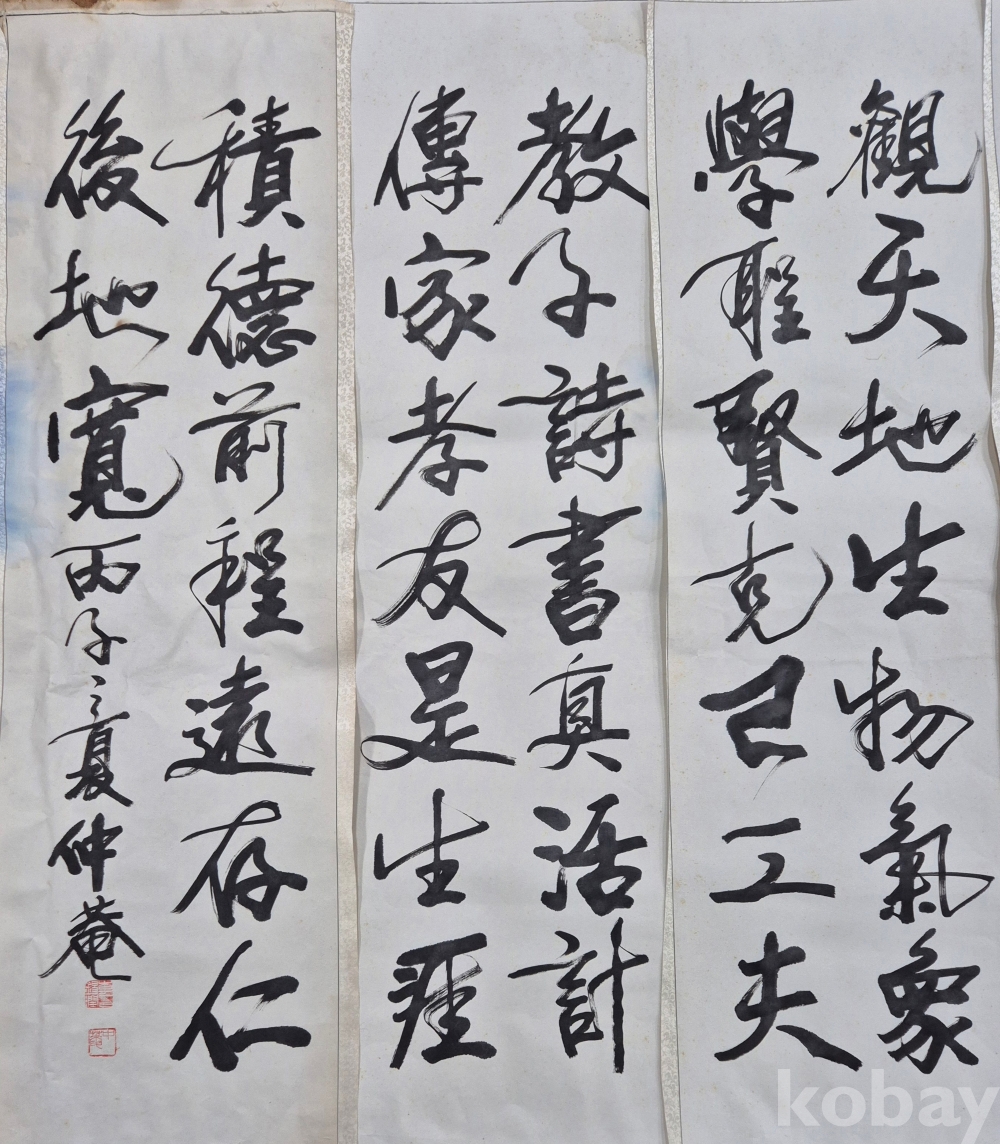 觀天地生物氣象
學聖賢克己工夫
教子詩書真活計
傳家孝友是生涯
積德前程遠存仁
後地寬丙子之夏仲菴
kobay